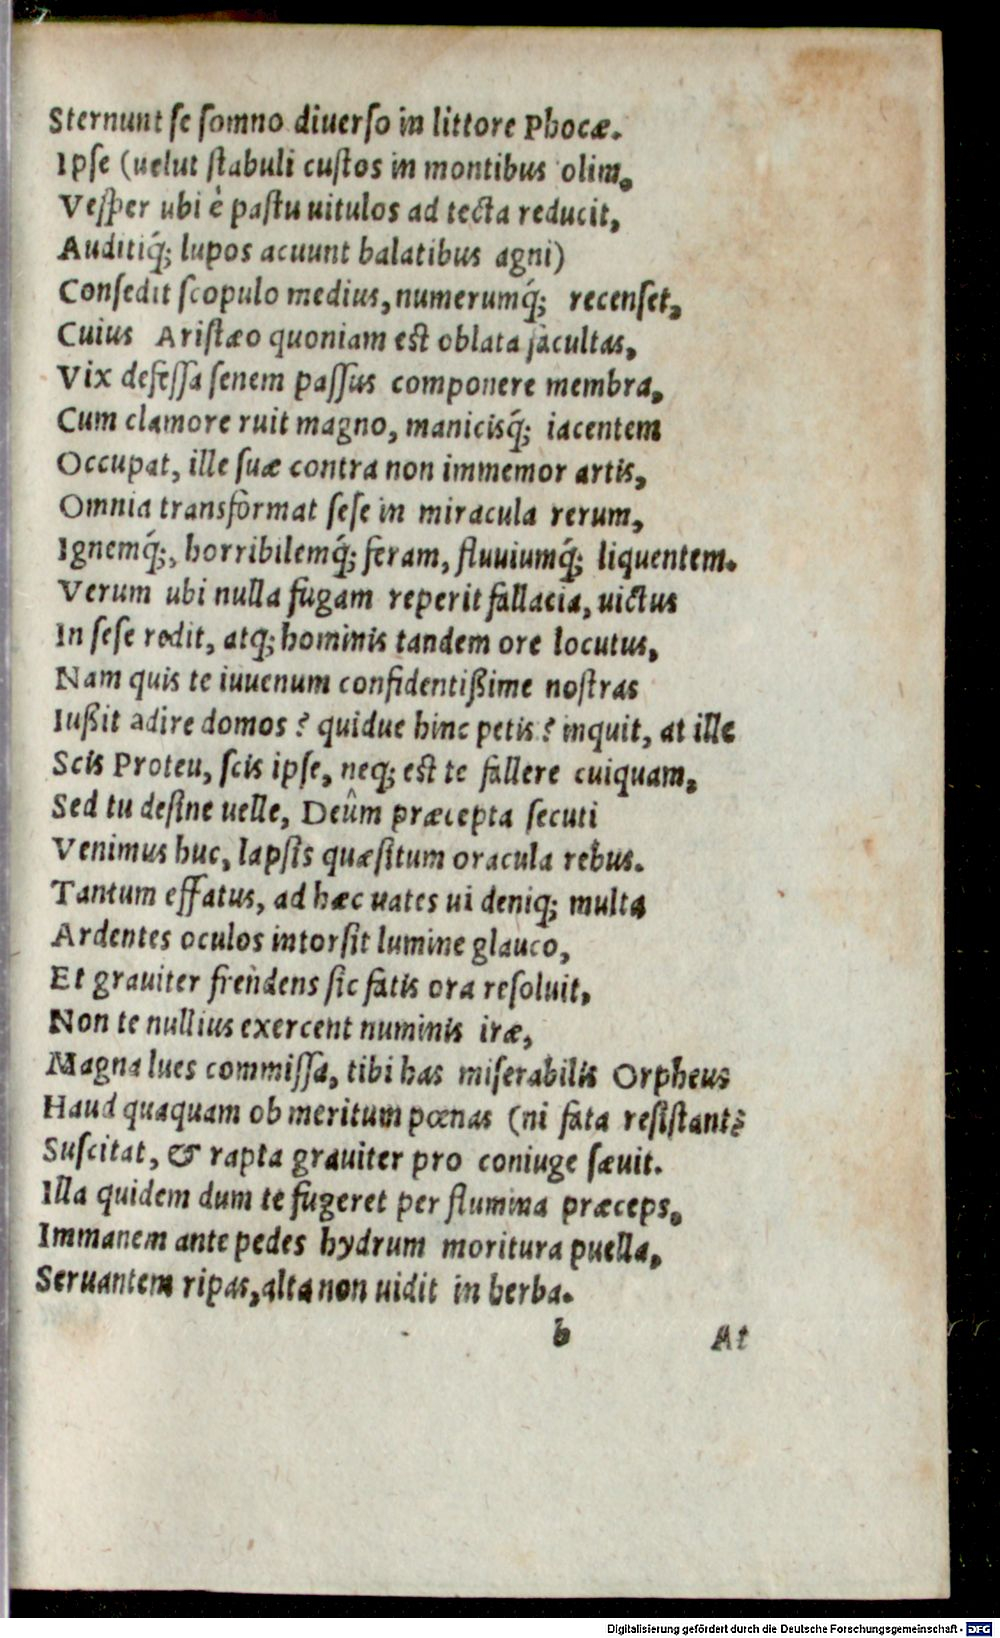 Sternunt se somno diuerso in littore Phocæ.
Ipse (uelut stabuli custos in montibus olim,
Vesper ubi è pastu uitulos ad tecta reducit,
Auditiq́; lupos acuunt balatibus agni)
Consedit scopulo medius, numerumq́; recenset,
Cuius Aristæo quoniam est oblata facultas,
Vix defessa senem passus componere membra,
Cum clamore ruit magno, manicisq́; iacentem
Occupat, ille suæ contra non immemor artis,
Omnia transformat sese in miracula rerum,
Ignemq́;, horribilemq́; feram, fluuiumq́; liquentem.
Verum ubi nulla fugam reperit fallacia, uictus
In sese redit, atq; hominis tandem ore locutus,
Nam quis te iuuenum confidentißime nostras
Iußit adire domos? quidue hinc petis? inquit, at ille
Scis Proteu, scis ipse, neq; est te fallere cuiquam,
Sed tu desine uelle, Deûm præcepta secuti
Venimus huc, lapsis quæsitum oracula rebus.
Tantum effatus, ad hæc uates ui deniq; multa
Ardentes oculos intorsit lumine glauco,
Et grauiter frendens sic fatis ora resoluit,
Non te nullius exercent numinis iræ,
Magna lues commissa, tibi has miserabilis Orpheus
Haud quaquam ob meritum pœnas (ni fata resistant)
Suscitat, & rapta grauiter pro coniuge sæuit.
Illa quidem dum te fugeret per flumina præceps,
Immanem ante pedes hydrum moritura puella,
Seruantem ripas, alta non uidit in herba.
b At
Digitalisierung gefördert durch die Deutsche Forschungsgemeinschaft - DFG